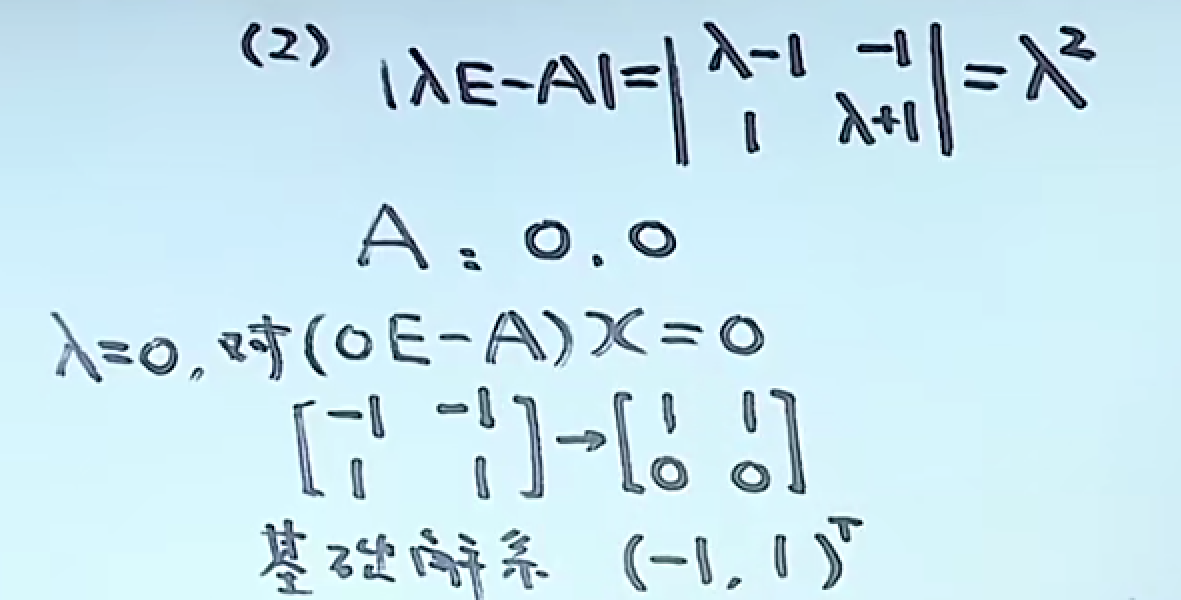 (2) |λE-A|=|λ-1 -1
1 λ+1|=λ²
A:0.0
λ=0,对(0E-A)X=0
[-1 -1
1 1]→[1 1
0 0]
基础解系 (-1,1)ᵀ